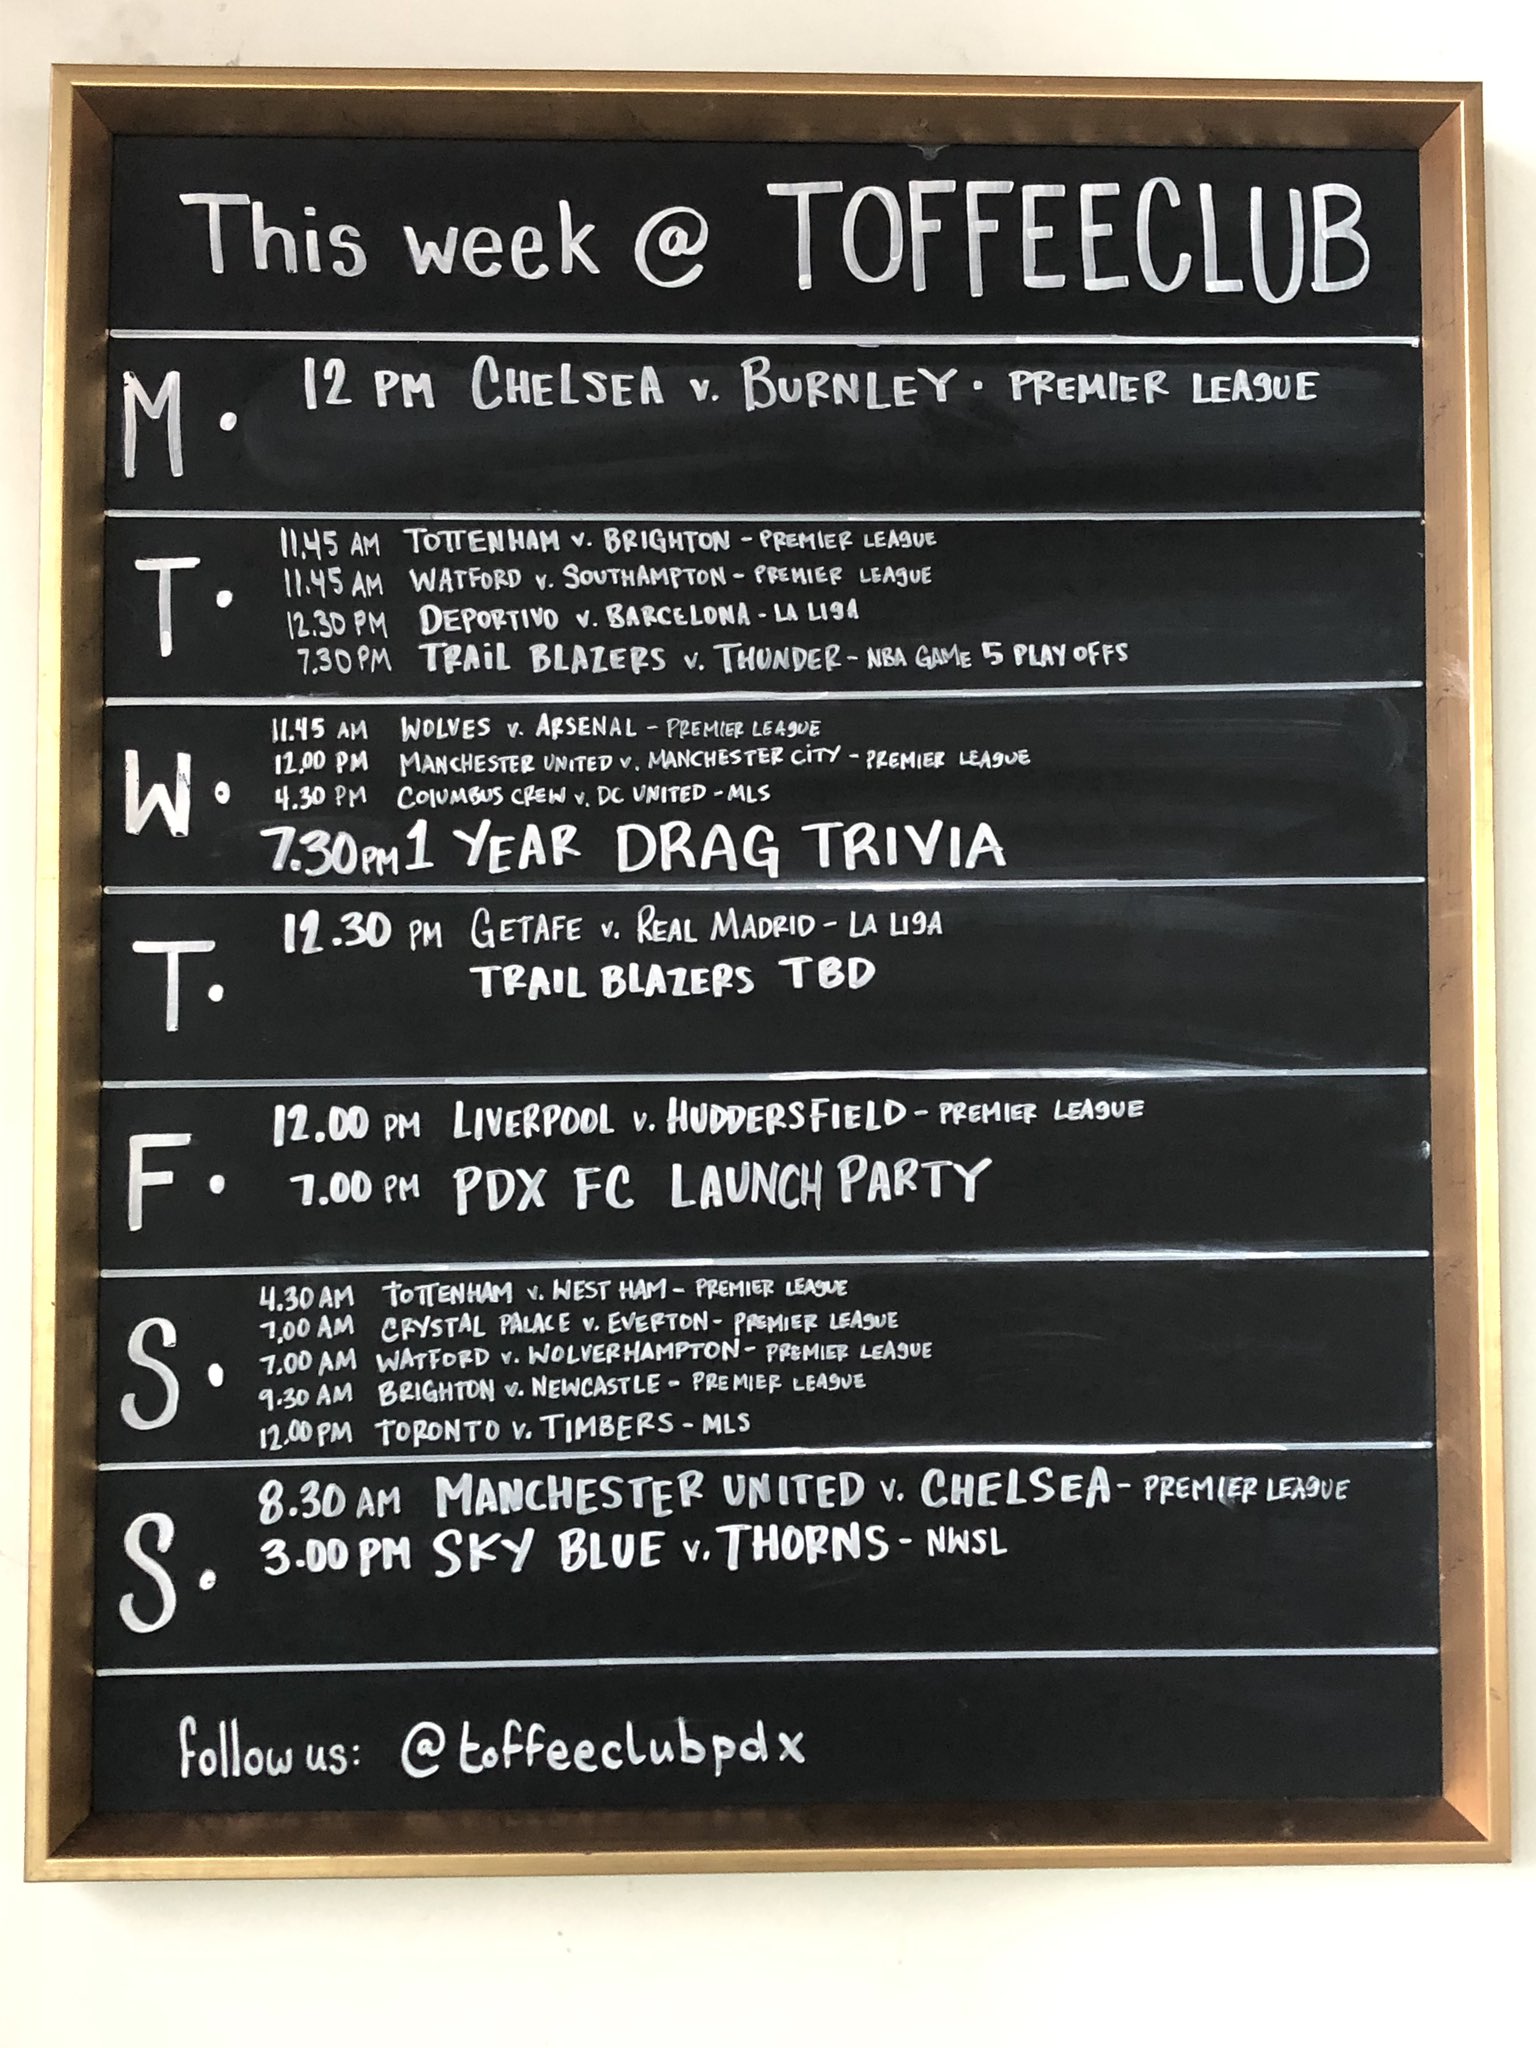 This week @ TOFFEECLUB
M. 12 PM CHELSEA v. BURNLEY · PREMIER LEAGUE
T. 11.45 AM TOTTENHAM v. BRIGHTON - PREMIER LEAGUE
11.45 AM WATFORD v. SOUTHAMPTON - PREMIER LEAGUE
12.30 PM DEPORTIVO v. BARCELONA - LA LIGA
7.30 PM TRAIL BLAZERS v. THUNDER - NBA GAME 5 PLAY OFFS
W. 11.45 AM WOLVES v. ARSENAL - PREMIER LEAGUE
12.00 PM MANCHESTER UNITED v. MANCHESTER CITY - PREMIER LEAGUE
4.30 PM COLUMBUS CREW v. DC UNITED - MLS
7.30 PM 1 YEAR DRAG TRIVIA
T. 12.30 PM GETAFE v. REAL MADRID - LA LIGA
TRAIL BLAZERS TBD
F. 12.00 PM LIVERPOOL v. HUDDERSFIELD - PREMIER LEAGUE
7.00 PM PDX FC LAUNCH PARTY
S. 4.30 AM TOTTENHAM v. WEST HAM - PREMIER LEAGUE
7.00 AM CRYSTAL PALACE v. EVERTON - PREMIER LEAGUE
7.00 AM WATFORD v. WOLVERHAMPTON - PREMIER LEAGUE
9.30 AM BRIGHTON v. NEWCASTLE - PREMIER LEAGUE
12.00 PM TORONTO v. TIMBERS - MLS
S. 8.30 AM MANCHESTER UNITED v. CHELSEA - PREMIER LEAGUE
3.00 PM SKY BLUE v. THORNS - NWSL
follow us: @toffeeclubpdx